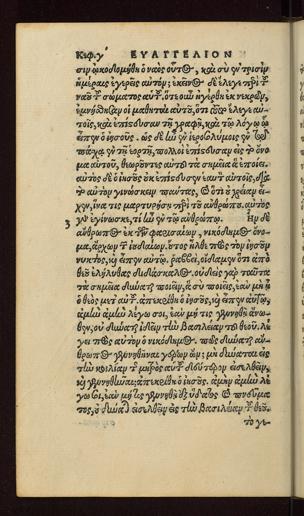 Κεφ. γ' ΕΥΑΓΓΕΛΙΟΝ
σιν ὠκοδομήθη ὁ ναὸς οὗτος, καὶ σὺ ἐν τρισὶν
ἡμέραις ἐγερεῖς αὐτόν; ἐκεῖνος δὲ ἔλεγε περὶ τοῦ
ναοῦ τοῦ σώματος αὐτοῦ. ὅτε οὖν ἠγέρθη ἐκ νεκρῶν,
ἐμνήσθησαν οἱ μαθηταὶ αὐτοῦ, ὅτι τοῦτο ἔλεγε αὐ-
τοῖς, καὶ ἐπίστευσαν τῇ γραφῇ, καὶ τῷ λόγῳ ᾧ
εἶπεν ὁ ἰησοῦς. ὡς δὲ ἦν ἐν ἱεροσολύμοις ἐν τῷ
πάσχα ἐν τῇ ἑορτῇ, πολλοὶ ἐπίστευσαν εἰς τὸ ὄνο-
μα αὐτοῦ, θεωροῦντες αὐτοῦ τὰ σημεῖα ἃ ἐποίει.
αὐτὸς δὲ ὁ ἰησοῦς οὐκ ἐπίστευεν ἑαυτὸν αὐτοῖς, διὰ
τὸ αὐτὸν γινώσκειν πάντας, καὶ ὅτι οὐ χρείαν εἶ-
χεν, ἵνα τις μαρτυρήσῃ περὶ τοῦ ἀνθρώπου. αὐτὸς
γὰρ ἐγίνωσκε, τί ἦν ἐν τῷ ἀνθρώπῳ. Ἦν δὲ
3 ἄνθρωπος ἐκ τῶν φαρισαίων, νικόδημος ὄνο-
μα, ἄρχων τῶν ἰουδαίων. οὗτος ἦλθε πρὸς τὸν ἰησοῦν
νυκτὸς, καὶ εἶπεν αὐτῷ. ῥαββεὶ, οἴδαμεν ὅτι ἀπὸ
θεοῦ ἐλήλυθας διδάσκαλος. οὐδεὶς γὰρ ταῦτα
τὰ σημεῖα δύναται ποιεῖν, ἃ σὺ ποιεῖς, ἐὰν μὴ ᾖ
ὁ θεὸς μετ' αὐτοῦ. ἀπεκρίθη ὁ ἰησοῦς, καὶ εἶπεν αὐτῷ,
ἀμὴν ἀμὴν λέγω σοι, ἐὰν μή τις γεννηθῇ ἄνω-
θεν, οὐ δύναται ἰδεῖν τὴν βασιλείαν τοῦ θεοῦ. λέ-
γει πρὸς αὐτὸν ὁ νικόδημος. πῶς δύναται ἄν-
θρωπος γεννηθῆναι γέρων ὤν; μὴ δύναται εἰς
τὴν κοιλίαν τῆς μητρὸς αὐτοῦ δεύτερον εἰσελθεῖν,
καὶ γεννηθῆναι; ἀπεκρίθη ὁ ἰησοῦς. ἀμὴν ἀμὴν λέ-
γω σοι, ἐὰν μή τις γεννηθῇ ἐξ ὕδατος καὶ πνεύμα-
τος, οὐ δύναται εἰσελθεῖν εἰς τὴν βασιλείαν τοῦ θεοῦ.
τὸ γε-